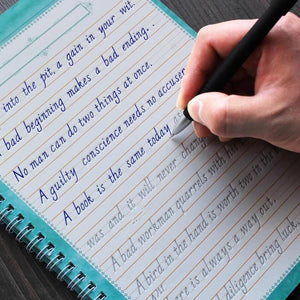 into the pit, a gain in your wit.
bad beginning makes a bad ending...
No man can do two things at once.
A guilty conscience needs no accuser
A book is the same today as
was, and it will never change
A bad workman quarrels with his
A bird in the hand is worth two in the
ere is always a way out.
diligence bring luck.